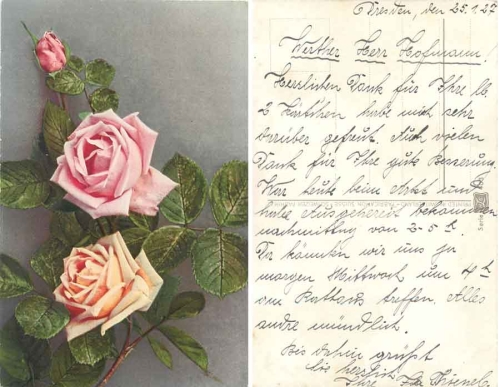 Dresden, den 25.1.27
Werther Herr Hofmann.
Herzlichen Dank für Ihre lb.
2 Kärtchen habe mich sehr
darüber gefreut. Auch vielen
Dank für Ihre gute Besserung.
War heute beim Arzt und
habe Ausgehzeit bekommen
nachmittag von 2-5
Da könnten wir uns ja
morgen Mittwoch um 4
am Rathaus treffen. Alles
andre mündlich.
Bis dahin grüßt
Sie herzlich
Ihre
Serie